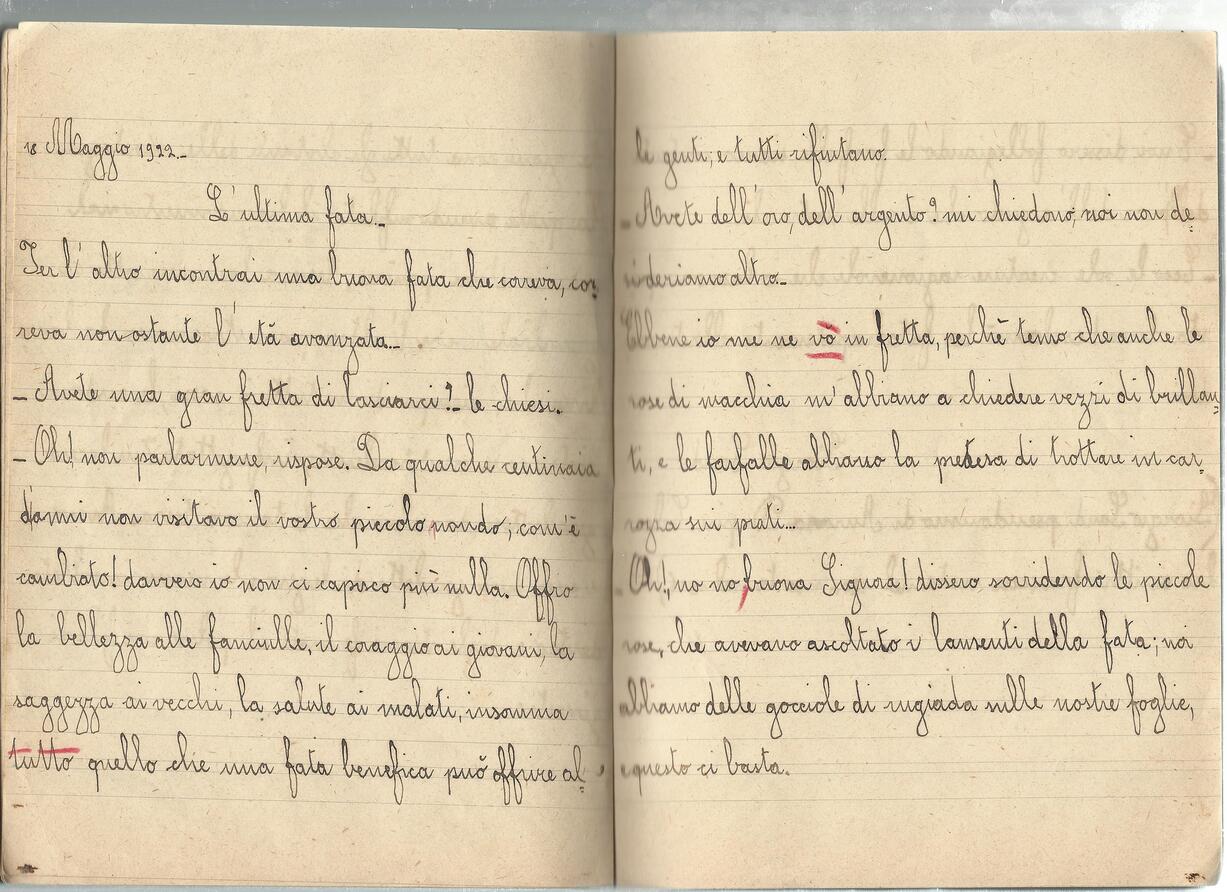 18 Maggio 1922._
L'ultima fata._
Ier l'altro incontrai una buona fata che correva, cor=
reva non ostante l'età avanzata._
_ Avete una gran fretta di lasciarci?_ le chiesi.
_ Oh! non parlarmene, rispose. Da qualche centinaia
d'anni non visitavo il vostro piccolo mondo; com'è
cambiato! davvero io non ci capisco più nulla. Offro
la bellezza alle fanciulle, il coraggio ai giovani, la
saggezza ai vecchi, la salute ai malati, insomma
tutto quello che una fata benefica può offrire al=
le genti; e tutti rifiutano.
_ Avete dell'oro, dell'argento? mi chiedono; noi non de=
sideriamo altro._
Ebbene io me ne vò in fretta, perchè temo che anche le
rose di macchia m'abbiano a chiedere vezzi di brillan=
ti, e le farfalle abbiano la pretesa di trottare in car=
rozza sui prati...
_ Oh!, no no, buona Signora! dissero sorridendo le piccole
rose, che avevano ascoltato i lamenti della fata; noi
abbiamo delle gocciole di rugiada sulle nostre foglie,
e questo ci basta.